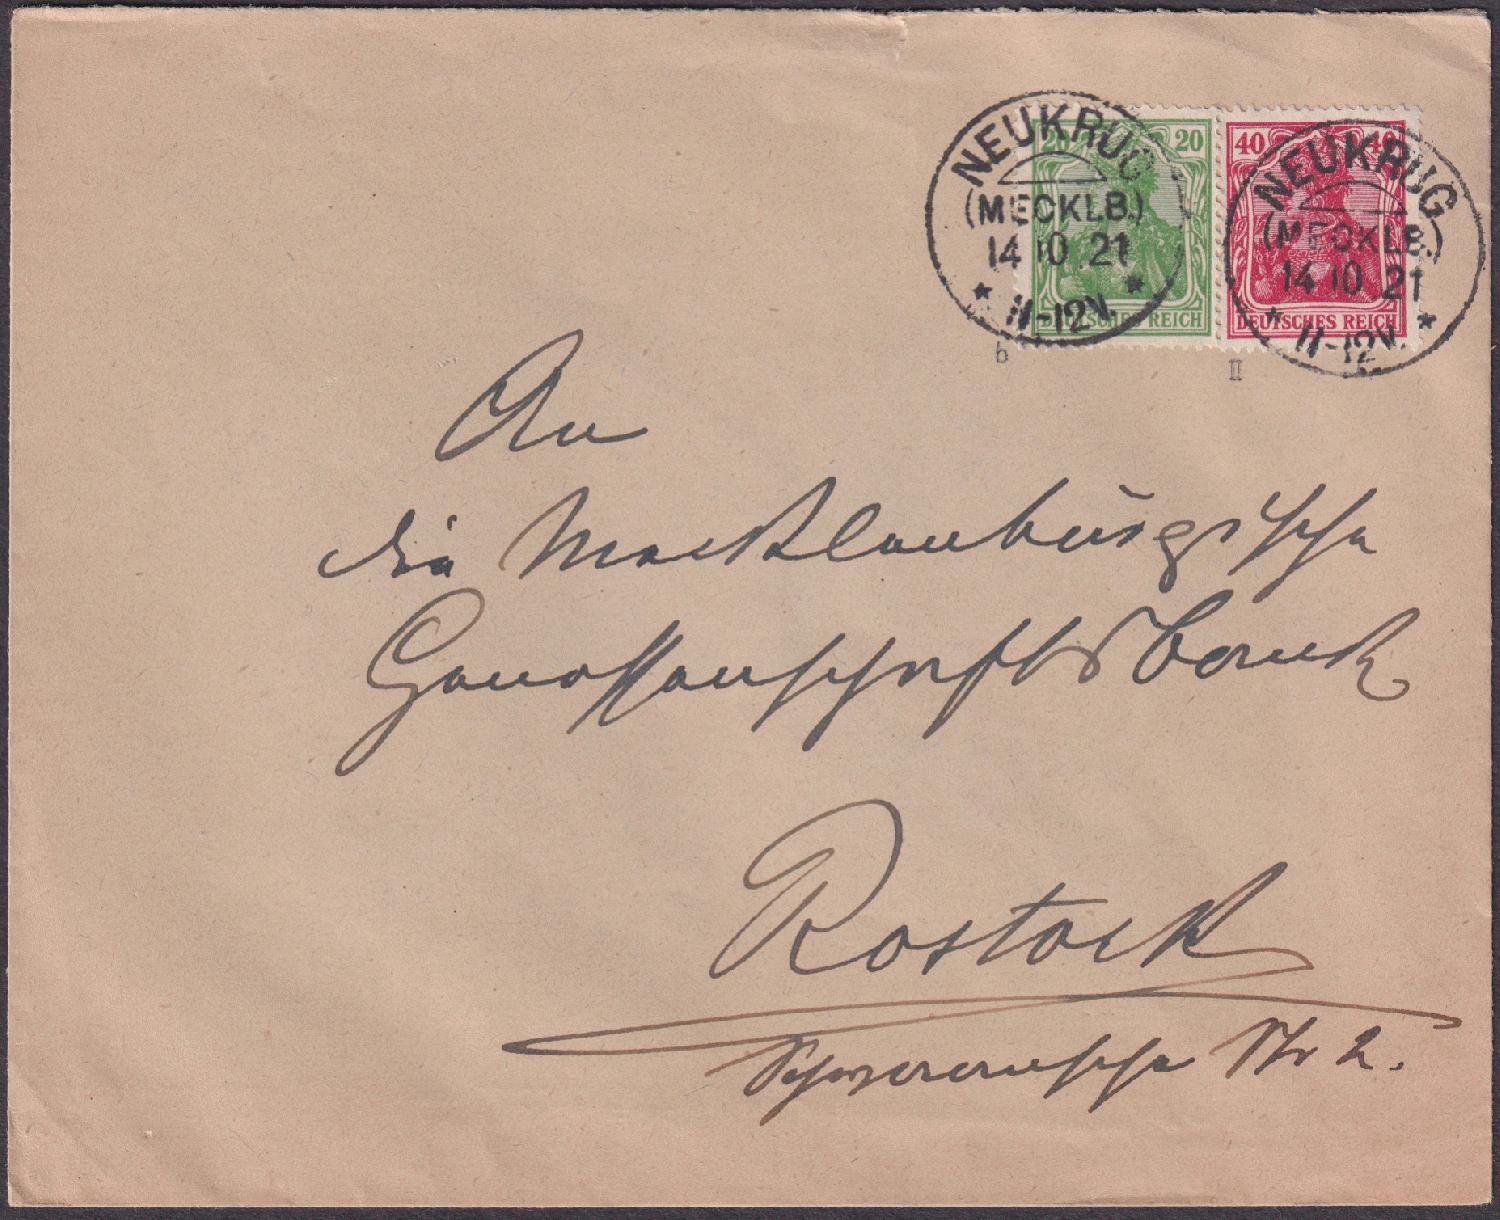 NEUKRUG
(MECKLB.)
14 10 21
* 11-12V. *
20 20
DEUTSCHES REICH
NEUKRUG
(MECKLB.)
14 10 21
* 11-12V. *
40 40
DEUTSCHES REICH
b
II
An
die Mecklenburgische
Genossenschaftsbank
Rostock
Str 2.